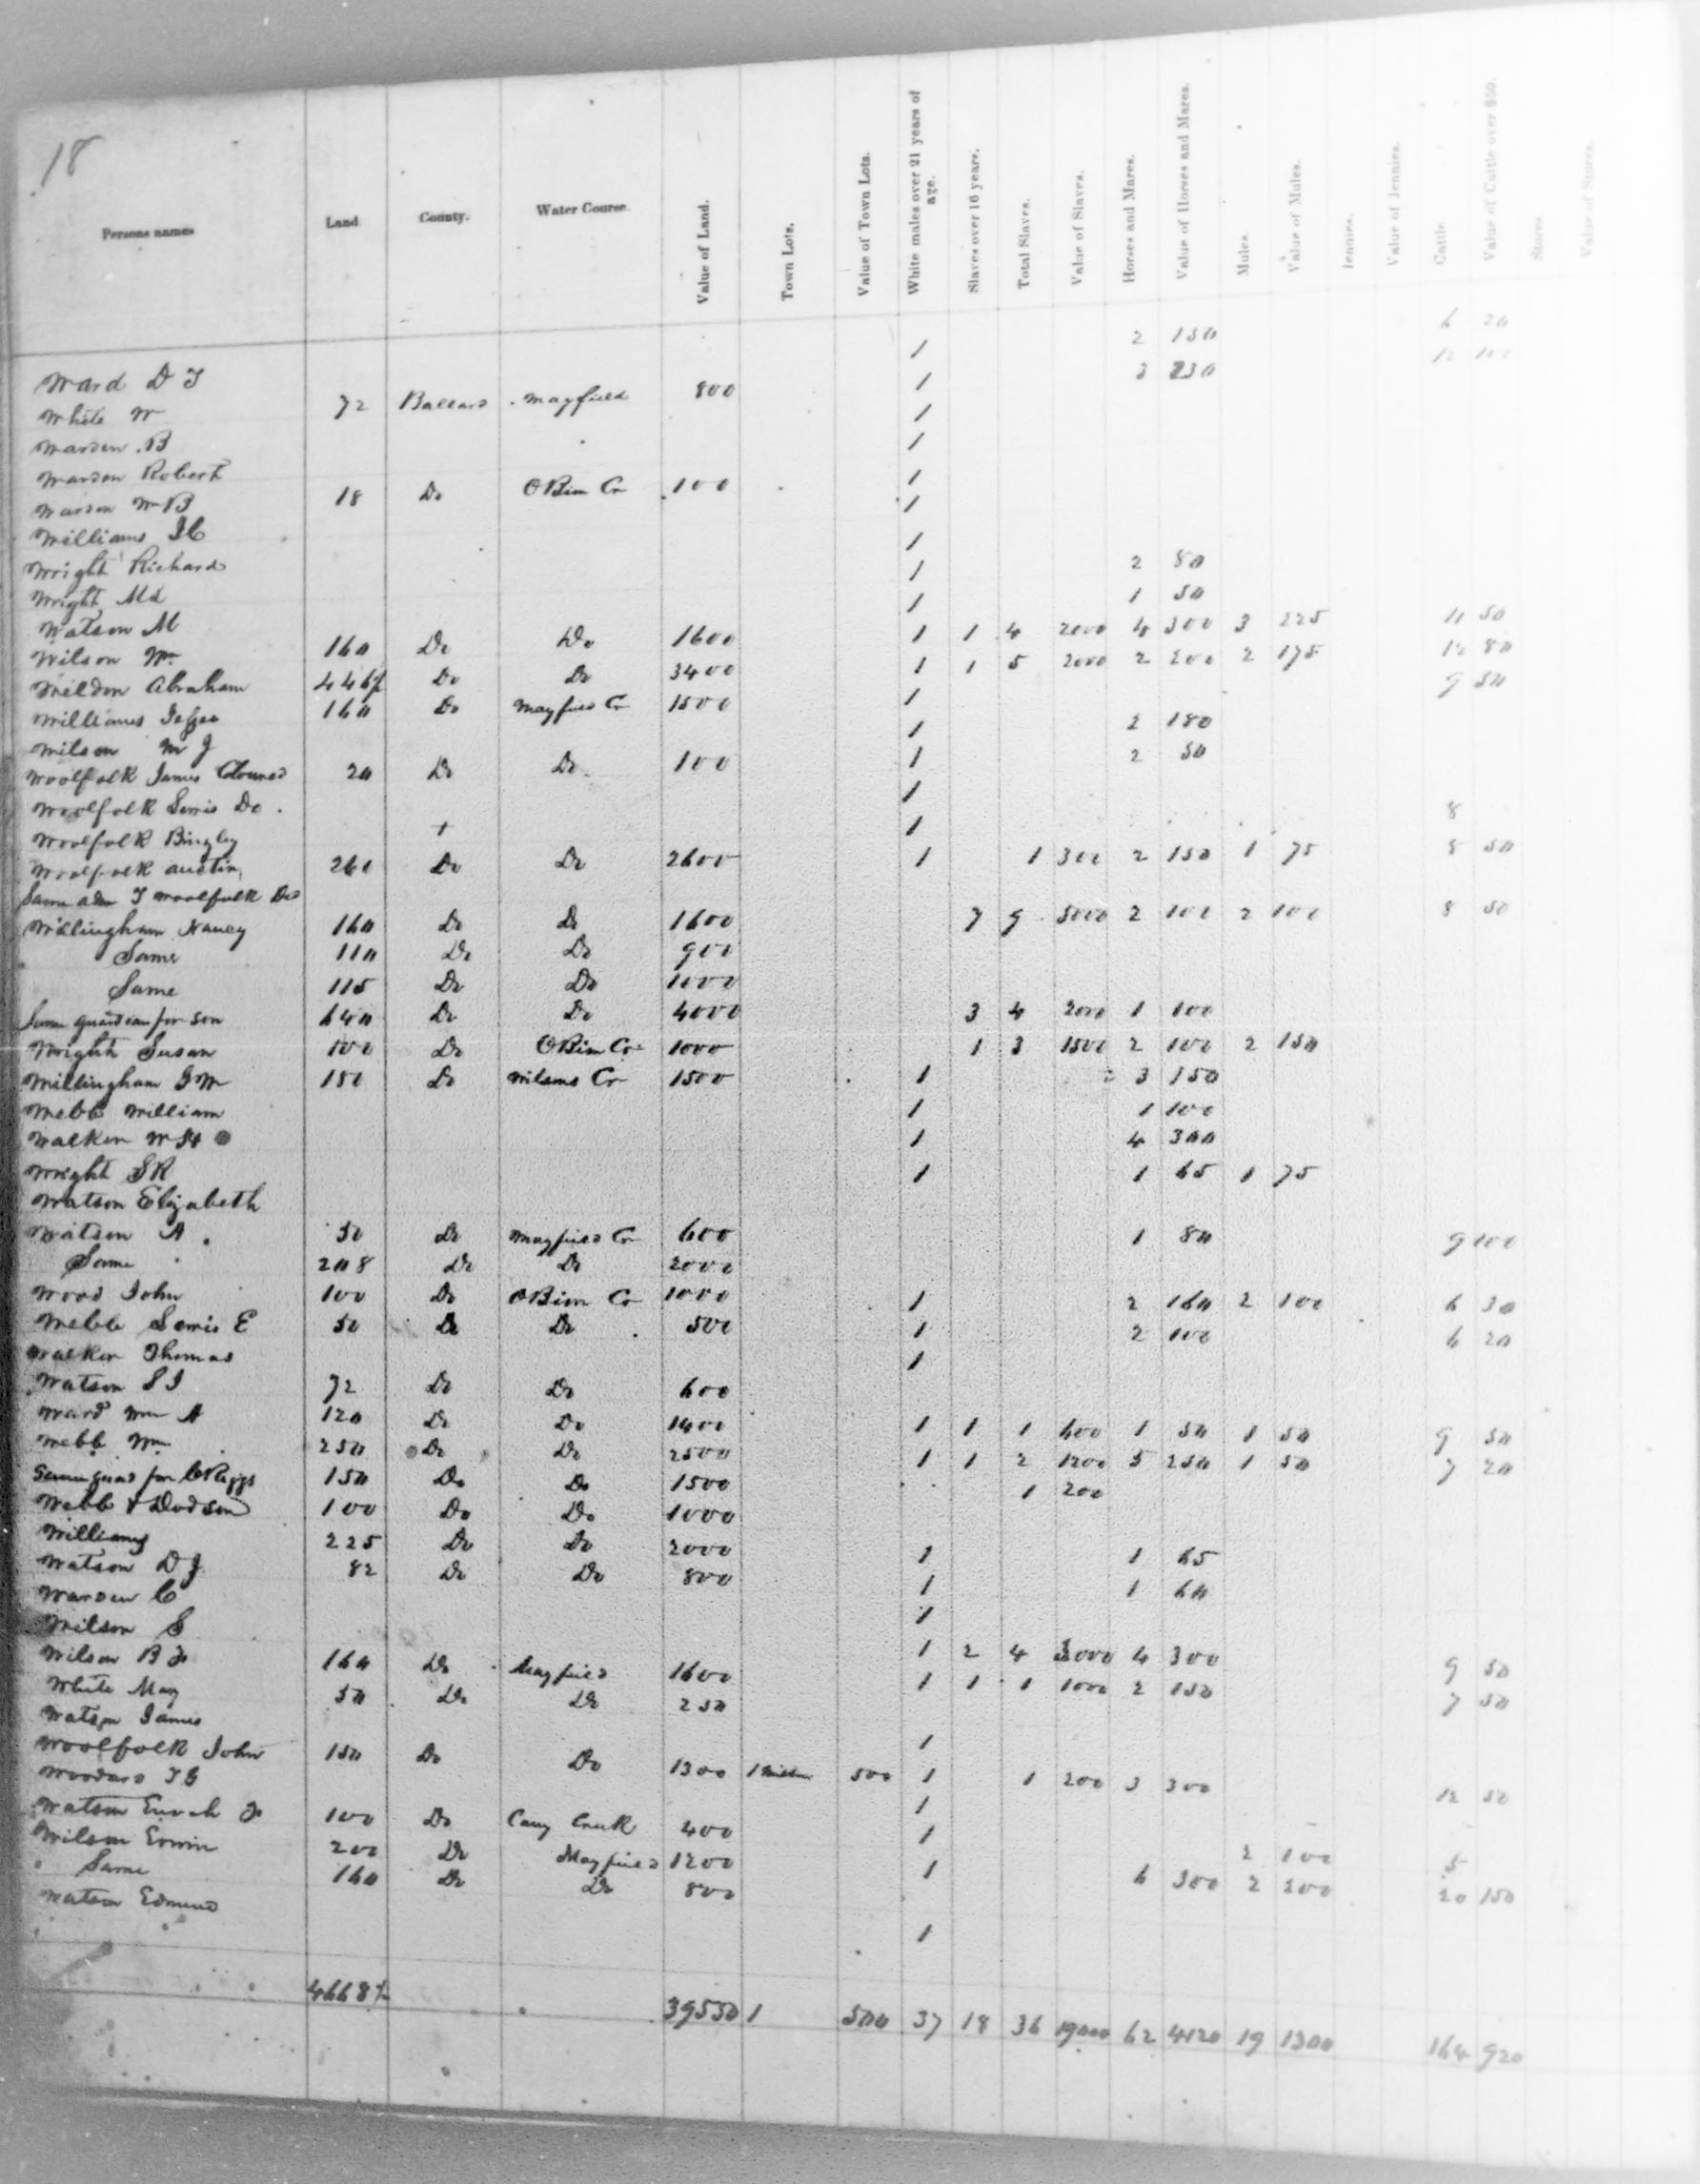 18
Persons names Land County. Water Course. Value of Land. Town Lots. Value of Town Lots. White males over 21 years of age. Slaves over 16 years. Total Slaves. Value of Slaves. Horses and Mares. Value of Horses and Mares. Mules. Value of Mules. Jennies. Value of Jennies. Cattle. Value of Cattle over $50. Stores Value of Stores.
Ward D T 1 2 150 6 20
White W 72 Ballard Mayfield 800 1 3 230 12 100
Warden B 1
Warden Robert 1
Warden Wm B 18 Do OBion Cr 100 1
Williams J C 1
Wright Richard 1
Wright Md 1 2 80
Watson M 1 1 50
Wilson Wm 160 Do Do 1600 1 1 4 2000 4 300 3 225 11 50
Weldon Abraham 446½ Do Do 3400 1 1 5 2000 2 200 2 175 12 80
Williams Jesse 160 Do Mayfield Cr 1500 1 9 50
Wilson W J 1 2 180
Woolfolk James Coloured 20 Do Do 100 1 2 50
Woolfolk Lewis Do 1
Woolfolk Bingley 1 8
Woolfolk Austin 260 Do Do 2600 1 1 300 2 150 1 75 8 50
Same adm T Woolfolk Decd
Willingham Nancy 160 Do Do 1600 7 9 5000 2 100 2 100 8 50
Same 110 Do Do 900
Same 115 Do Do 1000
Same guardian for son 640 Do Do 4000 3 4 2000 1 100
Wright Susan 100 Do OBion Cr 1000 1 3 1500 2 100 2 150
Willingham G W 150 Do Wilsons Cr 1500 1 3 150
Webb William 1 1 100
Walker W H 1 4 300
Wright S R 1 1 65 1 75
Watson Elizabeth
Watson A 50 Do Mayfield Cr 600 1 80 9 100
Same 208 Do Do 2000
Wood John 100 Do OBion Cr 1000 1 2 160 2 100 6 30
Webb Lewis E 50 Do Do 500 1 2 100 6 20
Walker Thomas 1
Watson S J 72 Do Do 600
Ward Wm A 120 Do Do 1400 1 1 1 600 1 50 1 50 9 50
Webb Wm 250 Do Do 2500 1 1 2 1200 5 250 1 50 7 20
Same guard for C Riggs 150 Do Do 1500 1 200
Webb & Dodson 100 Do Do 1000
Williams 225 Do Do 2000 1 1 65
Watson D J 82 Do Do 800 1 1 60
Warden C 1
Wilson S 1 2 4 3000 4 300 9 50
Wilson B Jr 160 Do Mayfield 1600 1 1 1 1000 2 150 7 50
White May 50 Do Do 250
Watson James 1
Woolfolk John 150 Do Do 1300 1 500 1 1 200 3 300 12 50
Woodard T G 1
Watson Enoch Jr 100 Do Cany Creek 400 1
Wilson Erwin 200 Do Mayfield 1200 1 2 100 5
Same 160 Do Do 800 6 300 2 200 20 150
Watson Edmund 1
4668½ 39550 1 500 37 18 36 19000 62 4120 19 1300 164 920